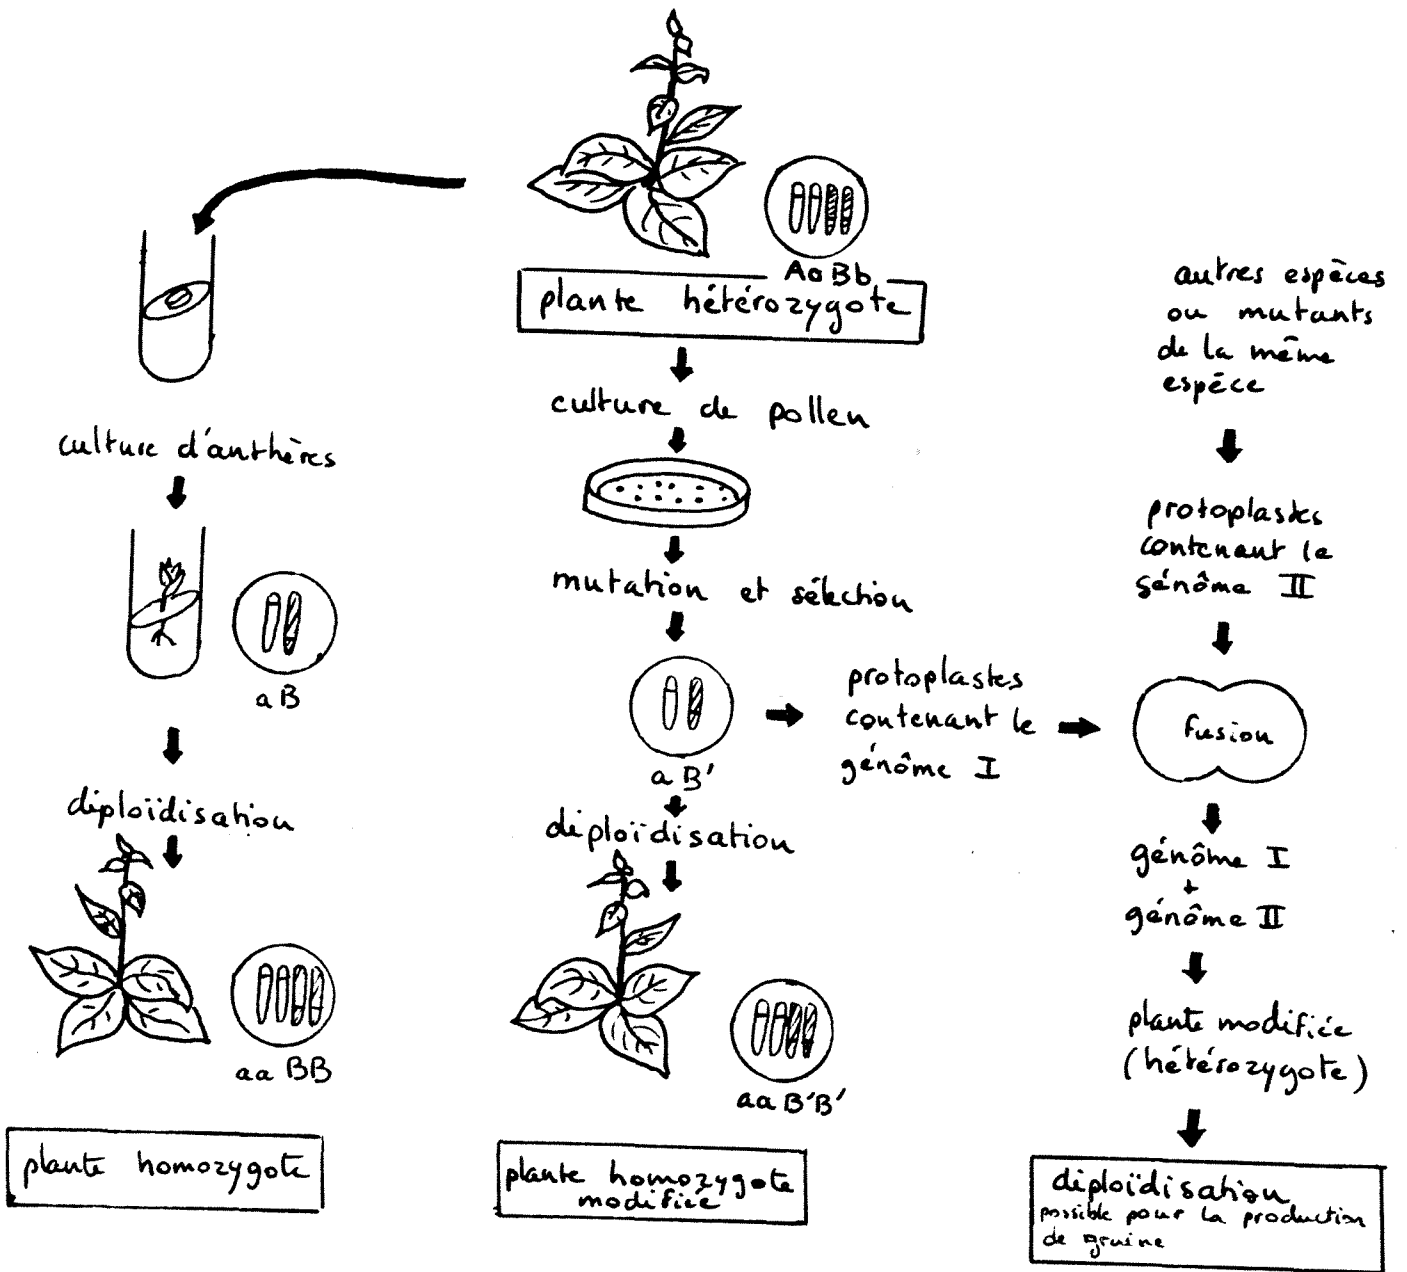 AaBb
plante hétérozygote
culture d'anthères
aB
diploïdisation
aa BB
plante homozygote
culture de pollen
mutation et sélection
a B'
diploïdisation
aa B'B'
plante homozygote
modifiée
protoplastes
contenant le
génôme I
autres espèces
ou mutants
de la même
espèce
protoplastes
contenant le
génôme II
fusion
génôme I
+
génôme II
plante modifiée
(hétérozygote)
diploïdisation
possible pour la production
de graine